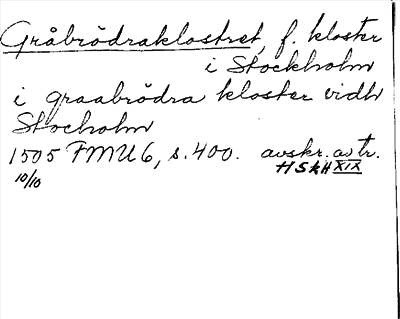 Gråbrödraklostret, f. kloster
i Stockholm
i graabrödra kloster vidh
Stocholm
1505 FMU 6, s. 400. avskr. av tr.
10/10 HSkH XIX